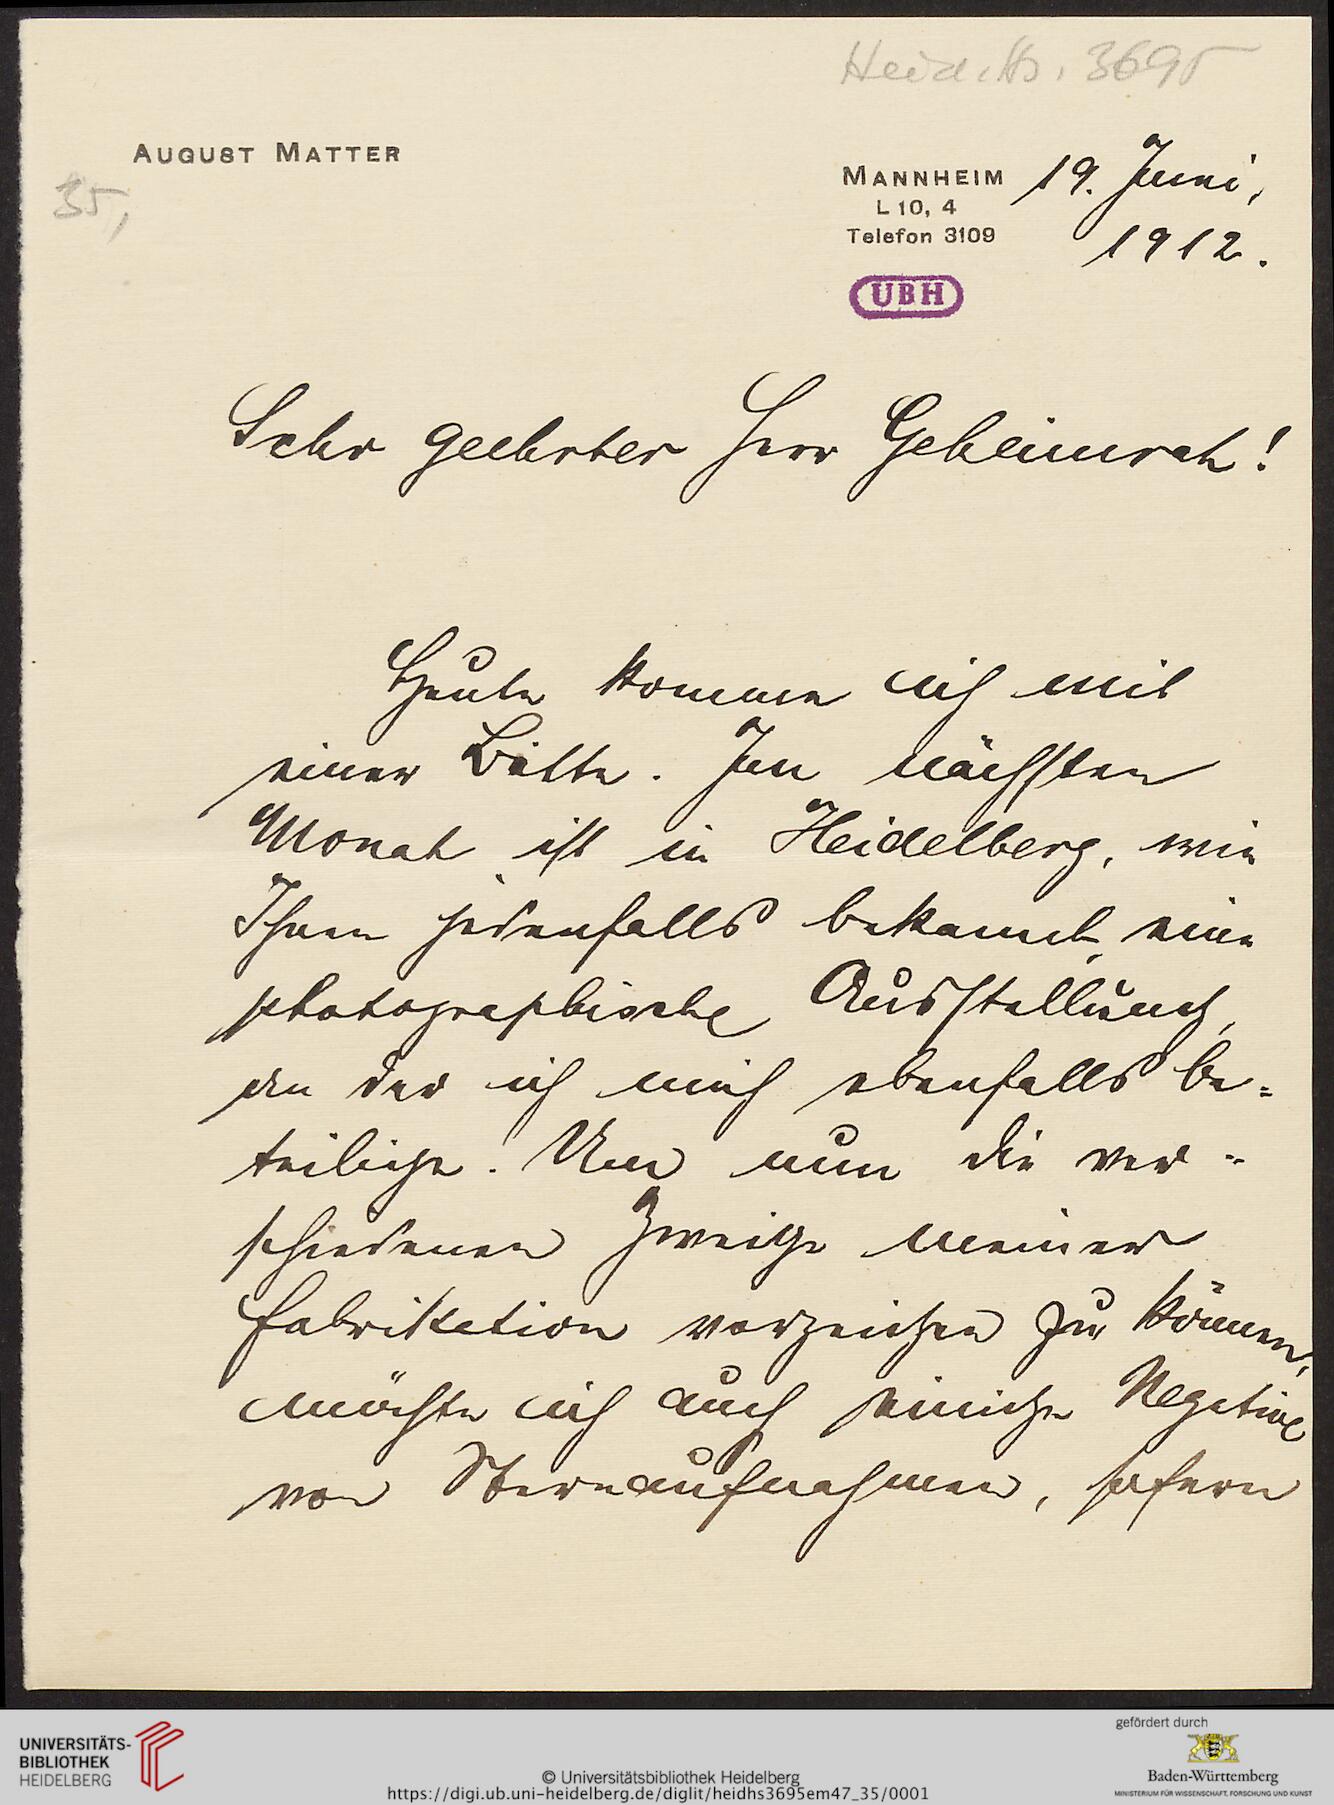 Heid. Hs. 3695
AUGUST MATTER
35,
MANNHEIM 19. Juni,
L 10, 4
Telefon 3109
1912.
UBH
Sehr geehrter Herr Geheimrat!
Heute komme ich mit
einer Bitte. Im nächsten
Monat ist in Heidelberg, wie
Ihnen jedenfalls bekannt, eine
photographische Ausstellung,
an der ich mich ebenfalls be-
teilige. Um nun die ver-
schiedenen Zweige meiner
Fabrikation vorzeigen zu können,
möchte ich auch einige Negative
von Sternaufnahmen, sofern
UNIVERSITÄTS-
BIBLIOTHEK
HEIDELBERG
© Universitätsbibliothek Heidelberg
https://digi.ub.uni-heidelberg.de/diglit/heidhs3695em47_35/0001
gefördert durch
Baden-Württemberg
MINISTERIUM FÜR WISSENSCHAFT, FORSCHUNG UND KUNST